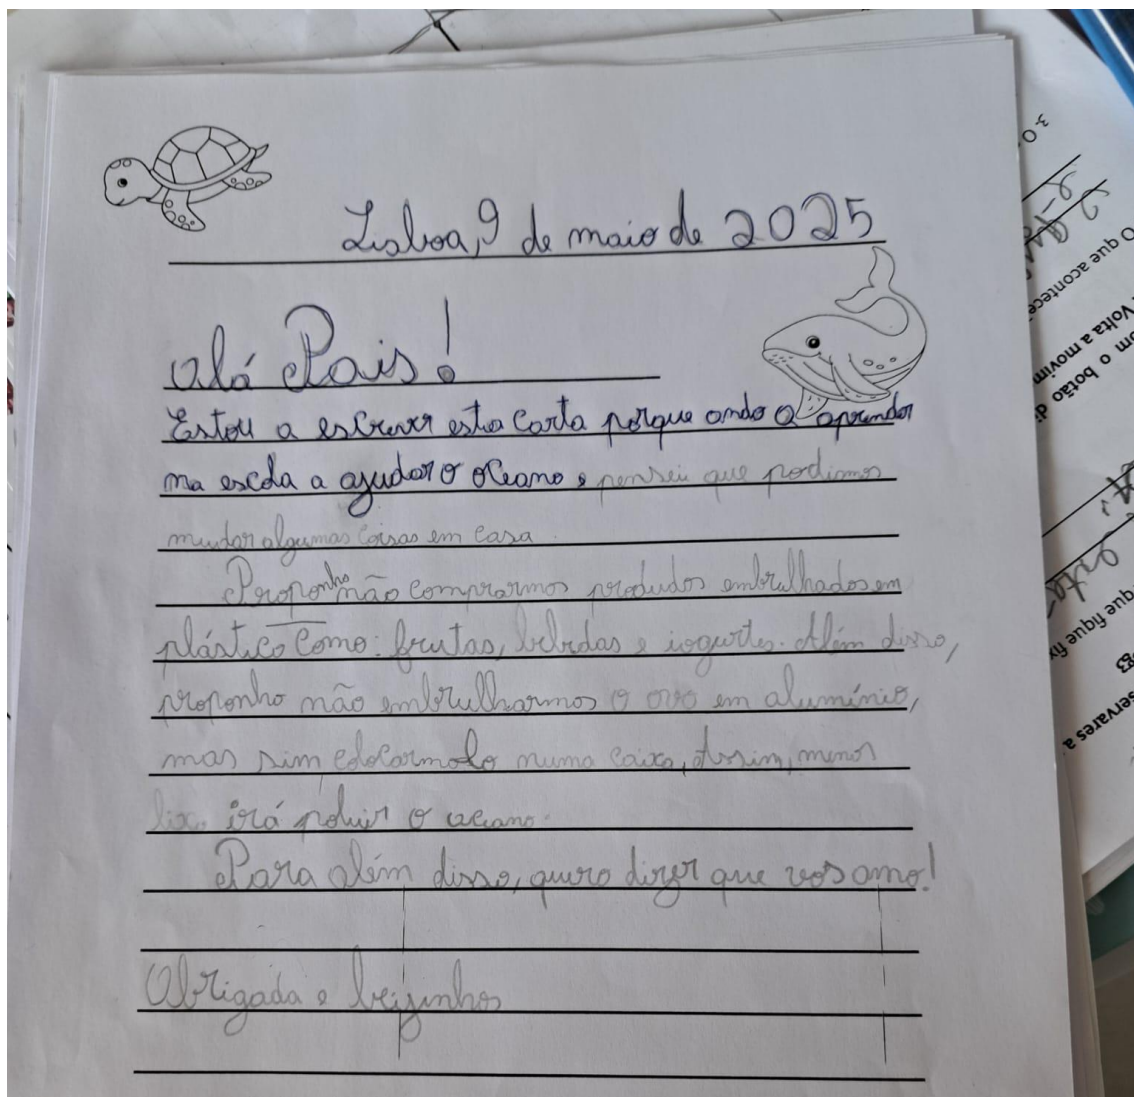 Lisboa, 9 de maio de 2025
Olá Pais!
Estou a escrever esta carta porque ando a aprender
na escola a ajudar o oceano e pensei que podimos
mudar algumas coisas em casa.
Proponho não comprarmos produdos embrulhados em
plástico como: frutas, bebidas e iogurtes. Além disso,
proponho não embrulharmos o ovo em alumínio,
mas sim colocarmolo numa caixa, Assim, menos
lixo irá poluir o oceano.
Para além disso, quero dizer que vos amo!
Obrigada e beijinhos
O que acontece
Volta a movim
om o botão di
que fique fix
servares a